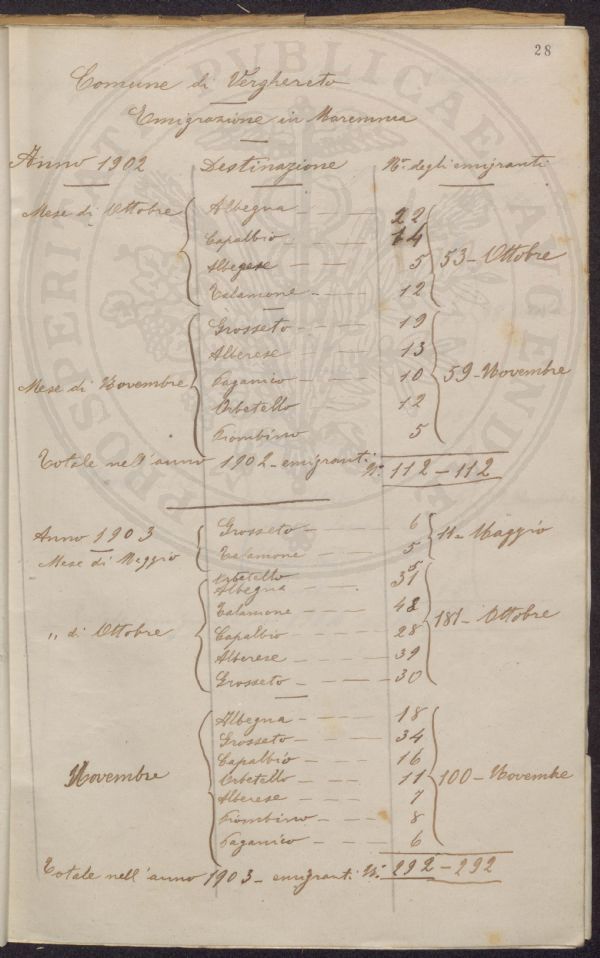 28
Comune di Verghereto
Emigrazione in Maremma
Anno 1902 Destinazione N.º degli emigranti
Mese di Ottobre Albegna - - - 22
Capalbio - - - 14
Albegese - - - 5 53 - Ottobre
Talamone - - - 12
Grosseto - - - 19
Alberese - - - 13
Mese di Novembre Paganico - - - 10 59 - Novembre
Orbetello 12
Piombino 5
Totale nell'anno 1902 - emigranti N.º 112 - 112
Anno 1903 Grosseto - - - 6
Mese di Maggio Talamone - - - 5 11 - Maggio
Orbetello 5
Albegna - - - 31
Talamone - - - 48
" di Ottobre Capalbio - - - 28 181 - Ottobre
Alberese - - - 39
Grosseto - - - 30
Albegna - - - 18
Grosseto - - - 34
Capalbio - - - 16
Novembre Orbetello - - - 11 100 - Novembre
Alberese - - - 7
Piombino - - - 8
Paganico - - - 6
Totale nell'anno 1903 - emigranti N.º 292 - 292